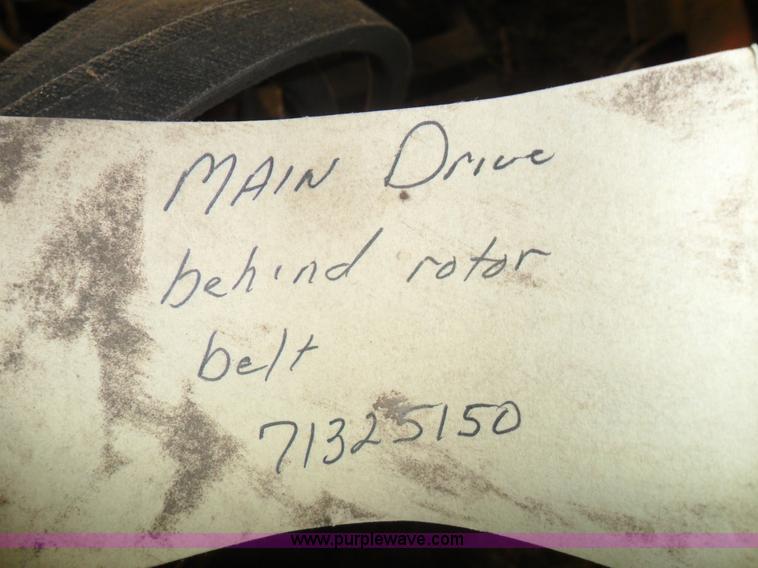 MAIN Drive
behind rotor
belt
71325150
www.purplewave.com